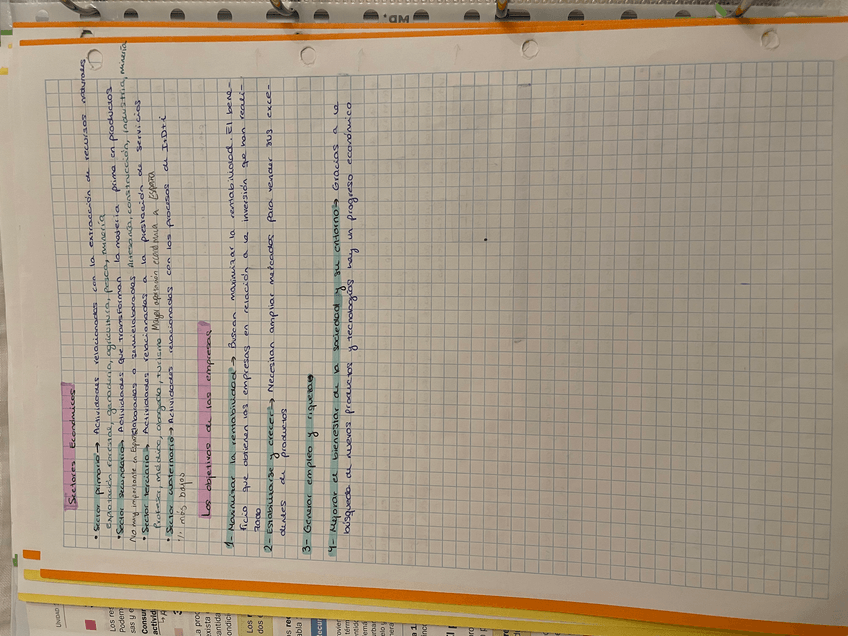 Sectores Económicos
• Sector primario → Actividades relacionadas con la extracción de recursos naturales
Explotación forestal, ganadería, agricultura, pesca, minería
• Sector secundario → Actividades que transforman la materia prima en productos
No muy importante en España elaborados o semielaborados Artesanía, construcción, industria, minería
• Sector terciario → Actividades relacionadas a la prestación de servicios
Profesor, médico, abogado, turismo Mayor aportación económica a España
• Sector cuaternario → Actividades relacionadas con los procesos de I+D+i
% más bajos
Los objetivos de las empresas
1- Maximizar la rentabilidad → Buscan maximizar la rentabilidad. El bene-
ficio que obtienen las empresas en relación a la inversión que han reali-
zado
2- Estabilizarse y crecer → Necesitan ampliar mercados para vender sus exce-
dentes de productos
3- Generar empleo y riqueza
4- Mejorar el bienestar de la sociedad y su entorno → Gracias a la
búsqueda de nuevos productos y tecnologías hay un progreso económico